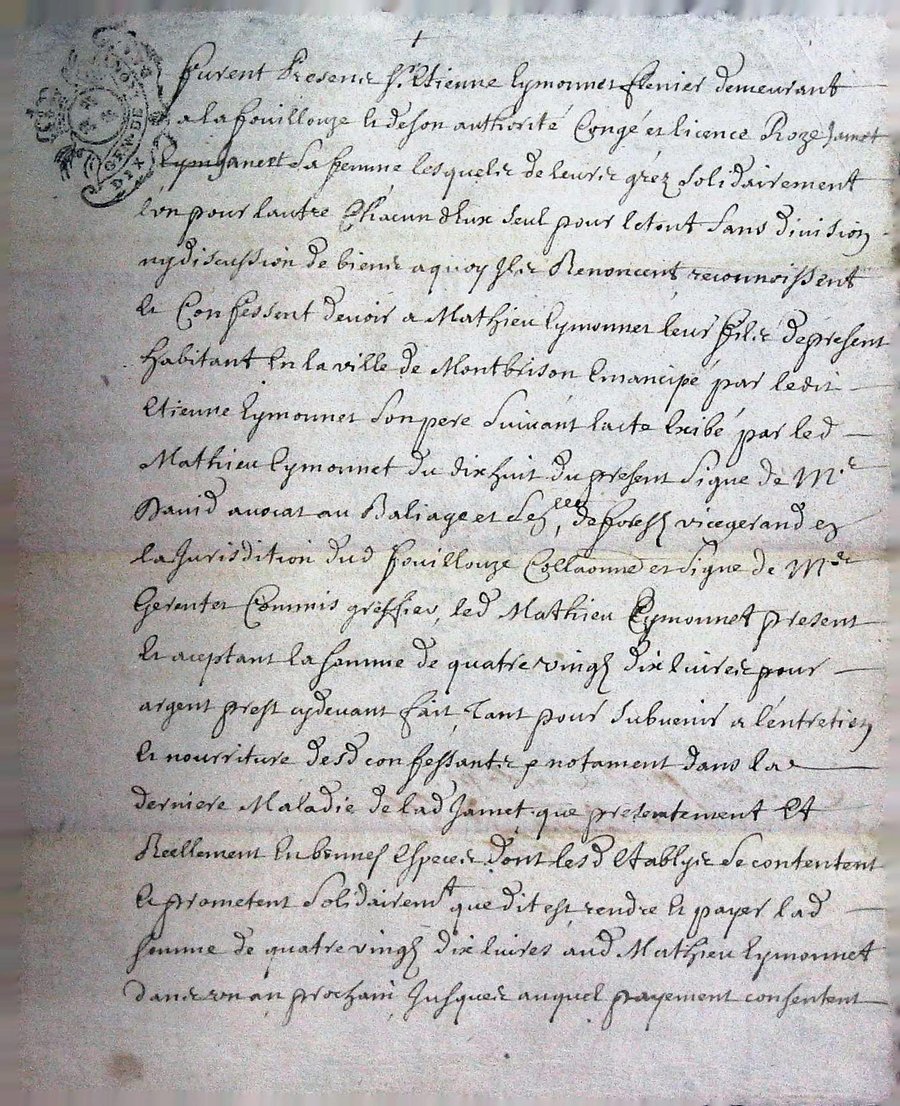 GEN. DE
DIX
furent Presens Sr. Etienne Eymonnet fermier demeurant
a la fouillouze et de son authorité Congé et licence Roze Jamet
sa femme lesquels de leurs grez solidairement
l'un pour lautre Chacun d'Eux seul pour le tout sans division
ny discussion de biens a quoy Ils Renoncent reconnoissent
et Confessent devoir a Mathieu Eymonnet leur fils de present
habitant En la ville de Montbrison Emancipé par ledit
Etienne Eymonnet son pere suivant lacte Exibé par led
Mathieu Eymonnet du dix huit du present signe de Mr
David avocat au Baliage et Senlee de forestz vicegerand en
la Jurisdition dud fouillouze Collaonné et signe de Mre
Gerentet Commis greffier, led Mathieu Eymonnet present
et aceptant la somme de quatre vingtz dix livres pour
argent prest cydevant fait, tant pour subvenir a l'entretien
et nourriture desd confessants notament dans la
derniere Maladie de lad Jamet que presentement et
Reellement En bonnes Especes dont lesd Etablys se contentent
et prometent solidairemt que dit est rendre et payer lad
somme de quatre vingtz dix livres aud Mathieu Eymonnet
dans un an prochain, Jusques auquel payement consentent